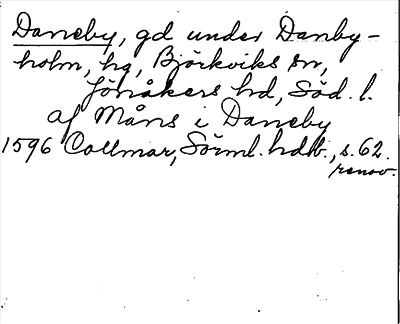 Daneby, gd under Danby-
holm, hg, Björkviks sn,
Jönåkers hd, Söd. l.
af Måns i Daneby
1596 Collmar, Sörml. hdlb., s. 62.
renov.